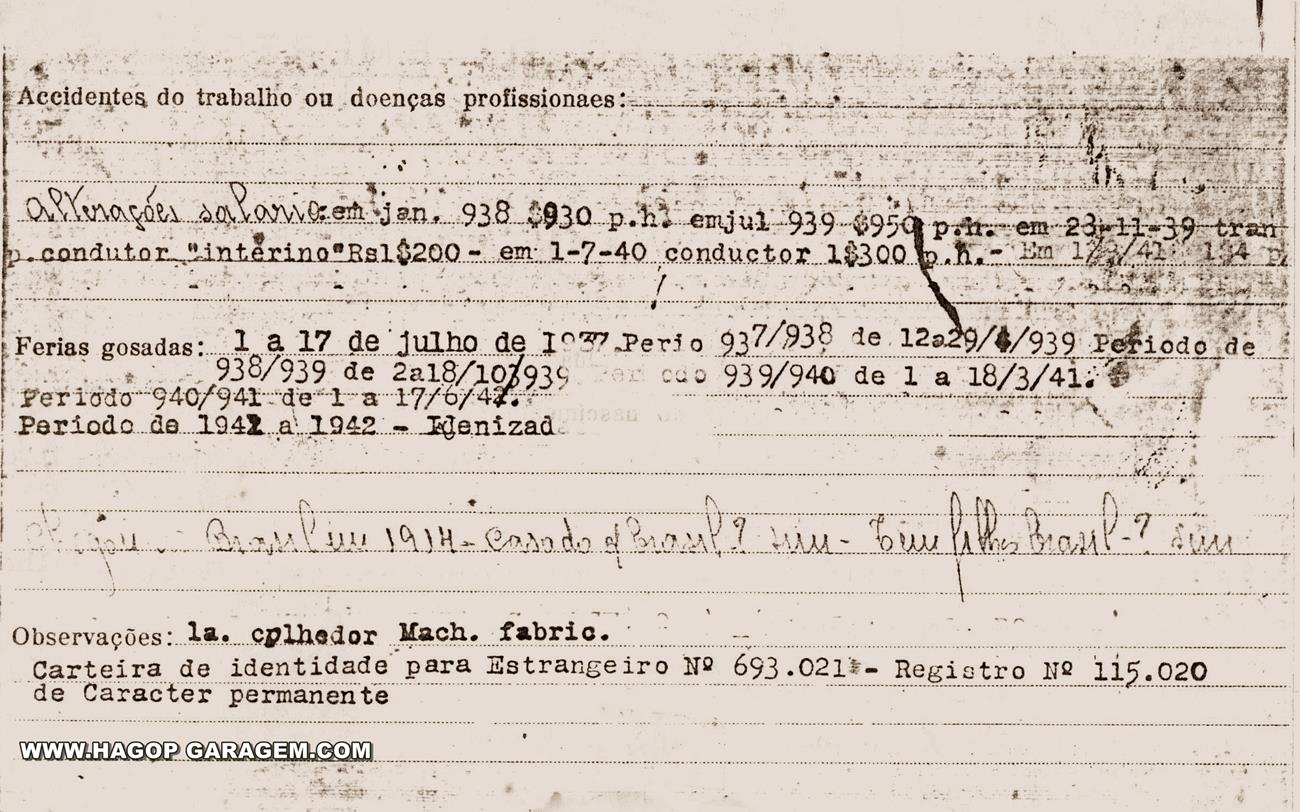 Accidentes do trabalho ou doenças profissionaes:
Alterações salario: em jan. 938 $930 p.h. emjul 939 $950 p.h. em 23-11-39 tran
p.condutor "interino"Rs1$200- em 1-7-40 conductor 1$300 p.h.- Em
Ferias gosadas: 1 a 17 de julho de I937.Perio 937/938 de 12a29/4/939 Periodo de
938/939 de 2a18/10/939 939/940 de 1 a 18/3/41.
Periodo 940/941 de 1 a 17/6/42.
Periodo de 1941 a 1942 - Idenizad
Brasil em 1914 - Casado c/ Brasil.? sim - Tem filhos Brasil-? sim
Observações: 1a. cplhedor Mach. fabric.
Carteira de identidade para Estrangeiro Nº 693.021 - Registro Nº 115.020
de Caracter permanente
WWW.HAGOP GARAGEM.COM